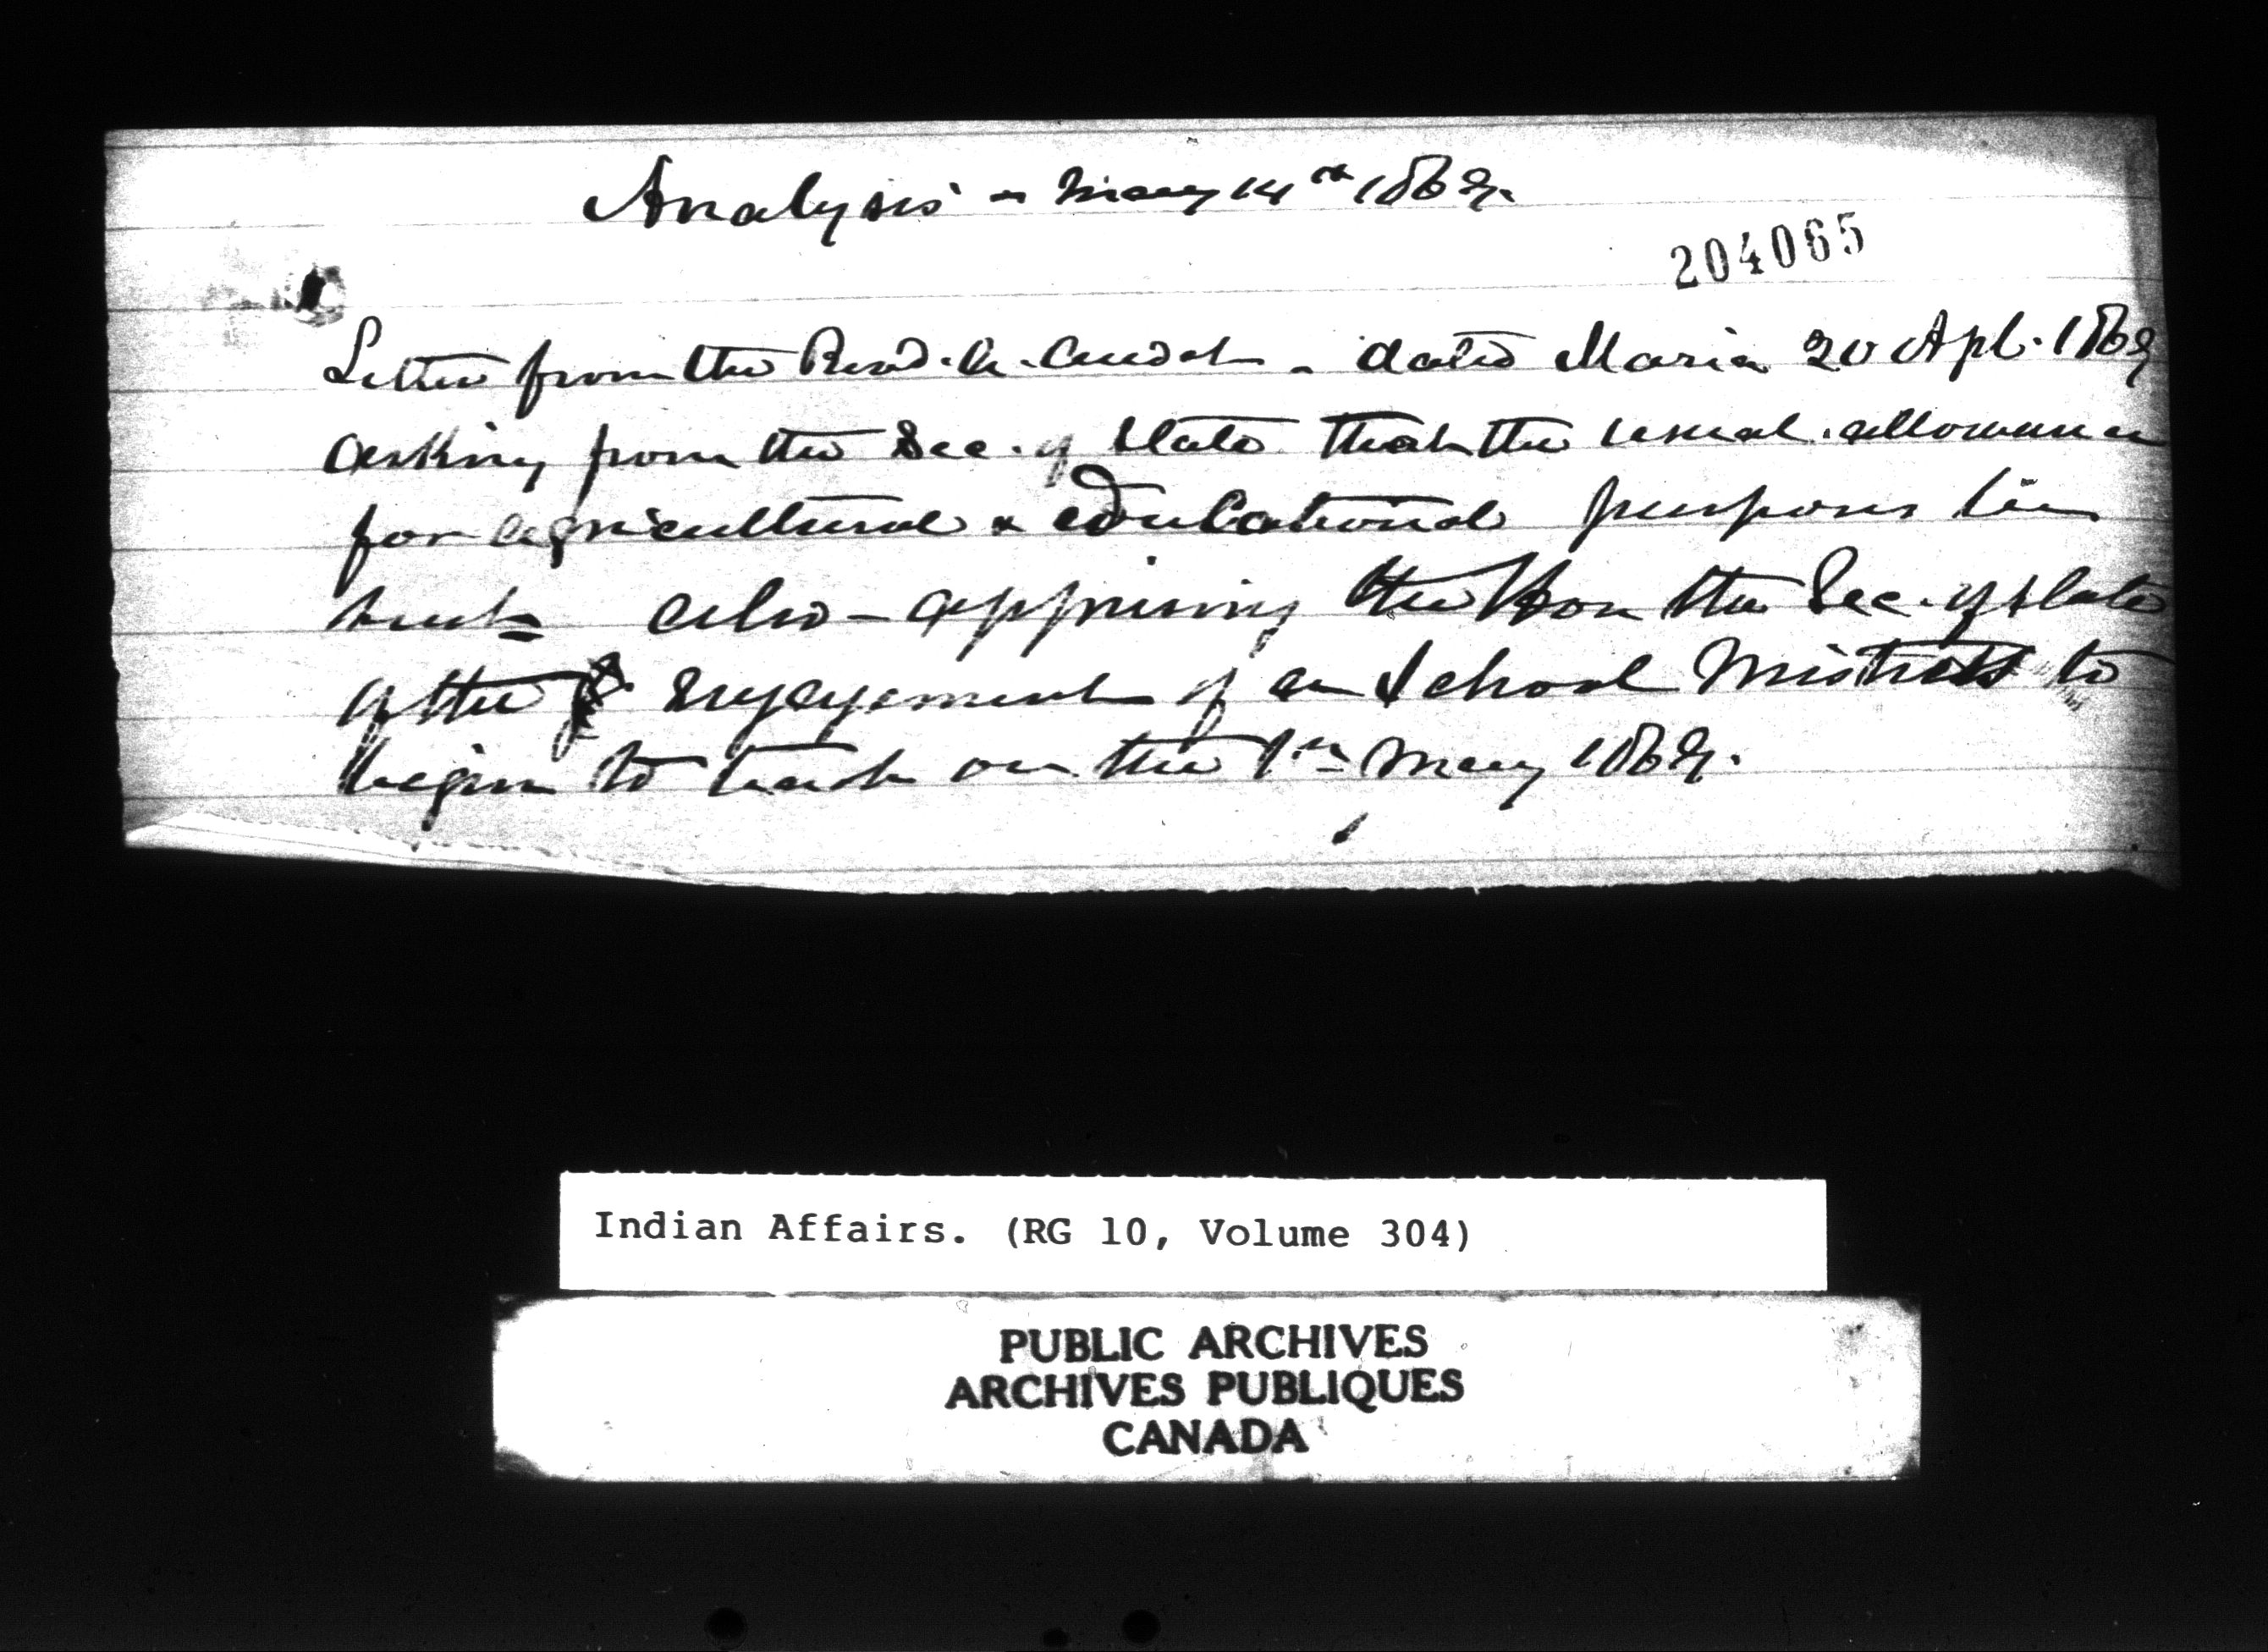 Analysis - May 14th 1869.
204065
Letter from the Revd. . Audet - dated Maria 20 Apl. 1869
asking from the Sec. of State that the usual allowance
for agricultural & educational purposes be
sent also - apprising the Hon the Sec. of State
of the engagement of a School Mistress to
begin to teach on the 1st May 1869.
Indian Affairs. (RG 10, Volume 304)
PUBLIC ARCHIVES
ARCHIVES PUBLIQUES
CANADA